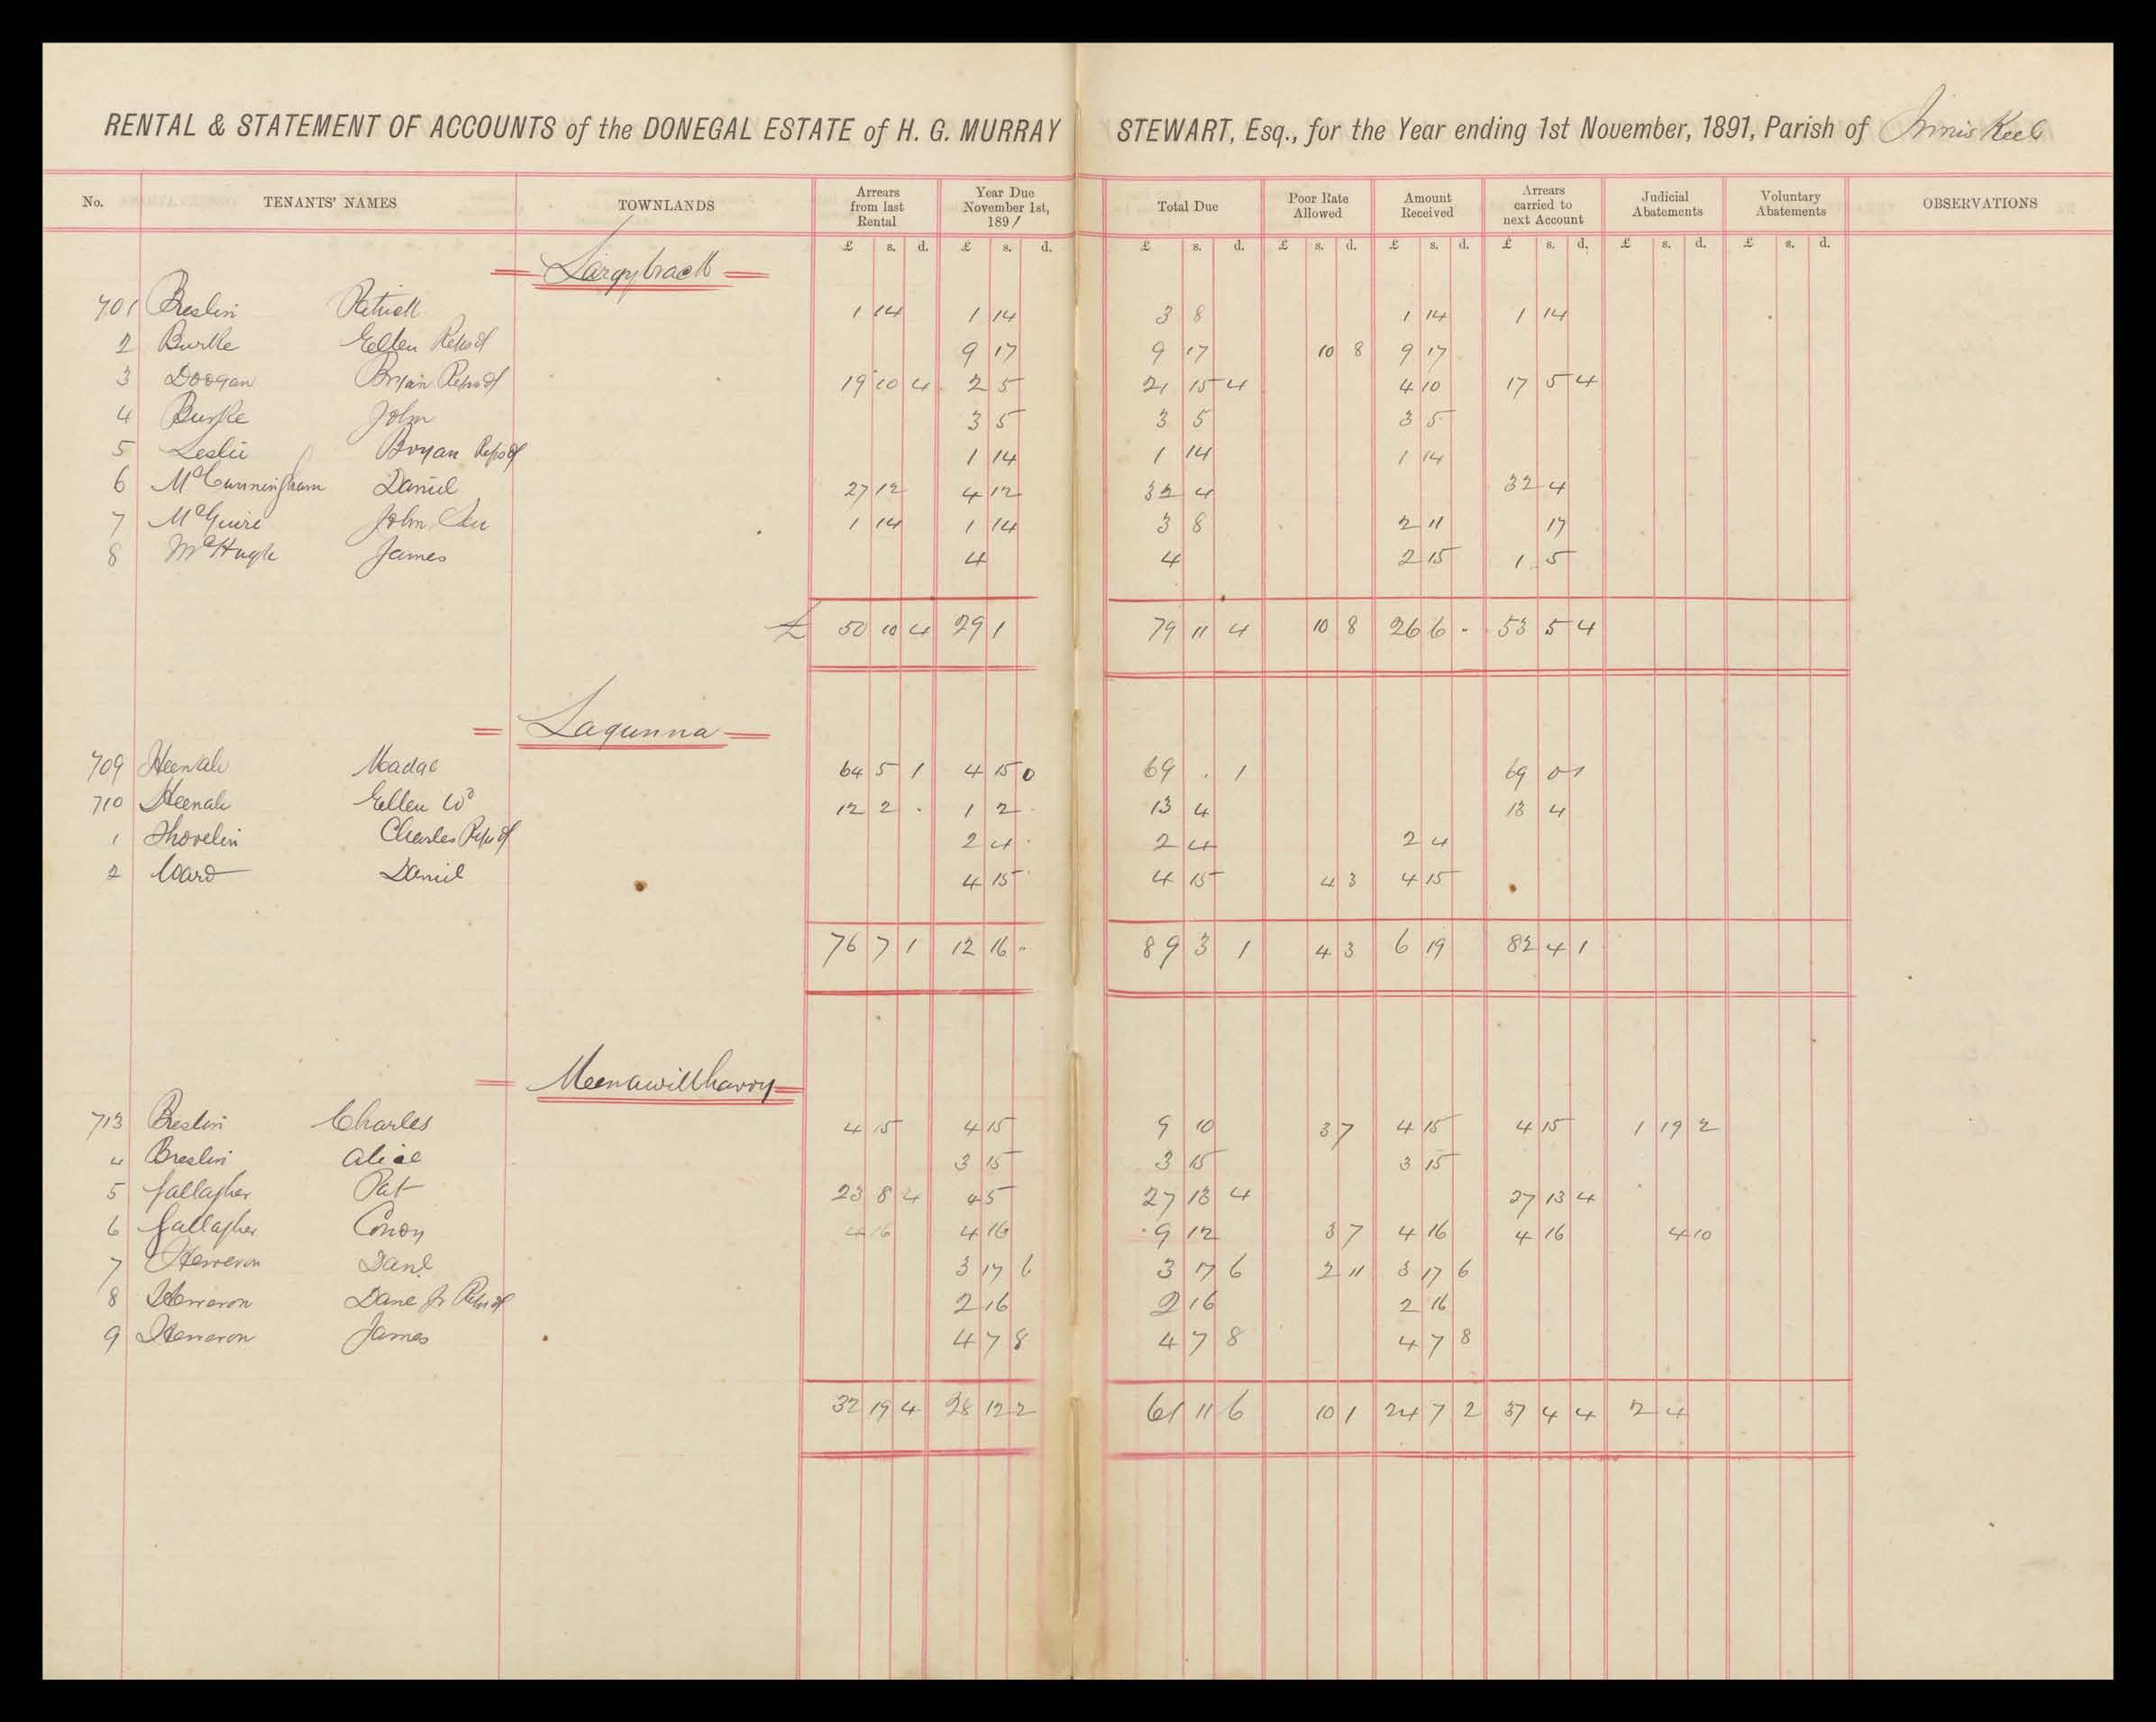 RENTAL & STATEMENT OF ACCOUNTS of the DONEGAL ESTATE of H. G. MURRAY STEWART, Esq., for the Year ending 1st November, 1891, Parish of Inniskeel
No. TENANTS' NAMES TOWNLANDS Arrears from last Rental Year Due November 1st, 1891 Total Due Poor Rate Allowed Amount Received Arrears carried to next Account Judicial Abatements Voluntary Abatements OBSERVATIONS
£ s. d. £ s. d. £ s. d. £ s. d. £ s. d. £ s. d. £ s. d. £ s. d.
Largybrack
701 Breslin Patrick 1 14 1 14 3 8 1 14 1 14
2 Burke Ellen Reps of 9 17 9 17 10 8 9 17
3 Doogan Bryan Reps of 19 10 4 2 5 21 15 4 4 10 17 5 4
4 Burke John 3 5 3 5 3 5
5 Leslie Bryan Reps of 1 14 1 14 1 14
6 McCunningham Daniel 27 12 4 12 32 4 32 4
7 McGuire John 1 14 1 14 3 8 2 11 17
8 McHugh James 4 4 2 15 1 5
£ 50 10 4 29 1 79 11 4 10 8 26 6 - 53 5 4
Lagunna
709 Heenah Madge 64 5 1 4 15 0 69 . 1 69 0 1
710 Heenah Ellen Wd 12 2 . 1 2 13 4 13 4
1 Shovelin Charles Reps of 2 4 2 4 2 4
2 Ward Daniel 4 15 4 15 4 3 4 15
76 7 1 12 16 " 89 3 1 4 3 6 19 82 4 1
Meenawillhavoy
713 Breslin Charles 4 15 4 15 9 10 3 7 4 15 4 15 1 19 2
4 Breslin Alice 3 15 3 15 3 15
5 Gallagher Pat 23 8 4 4 5 27 13 4 27 13 4
6 Gallagher Conoy 4 16 4 16 9 12 3 7 4 16 4 16 4 10
7 Herreron Danl 3 17 6 3 17 6 2 11 3 17 6
8 Herreron Dane Jr Reps of 2 16 2 16 2 16
9 Herreron James 4 7 8 4 7 8 4 7 8
32 19 4 28 12 2 61 11 6 10 1 24 7 2 37 4 4 2 4